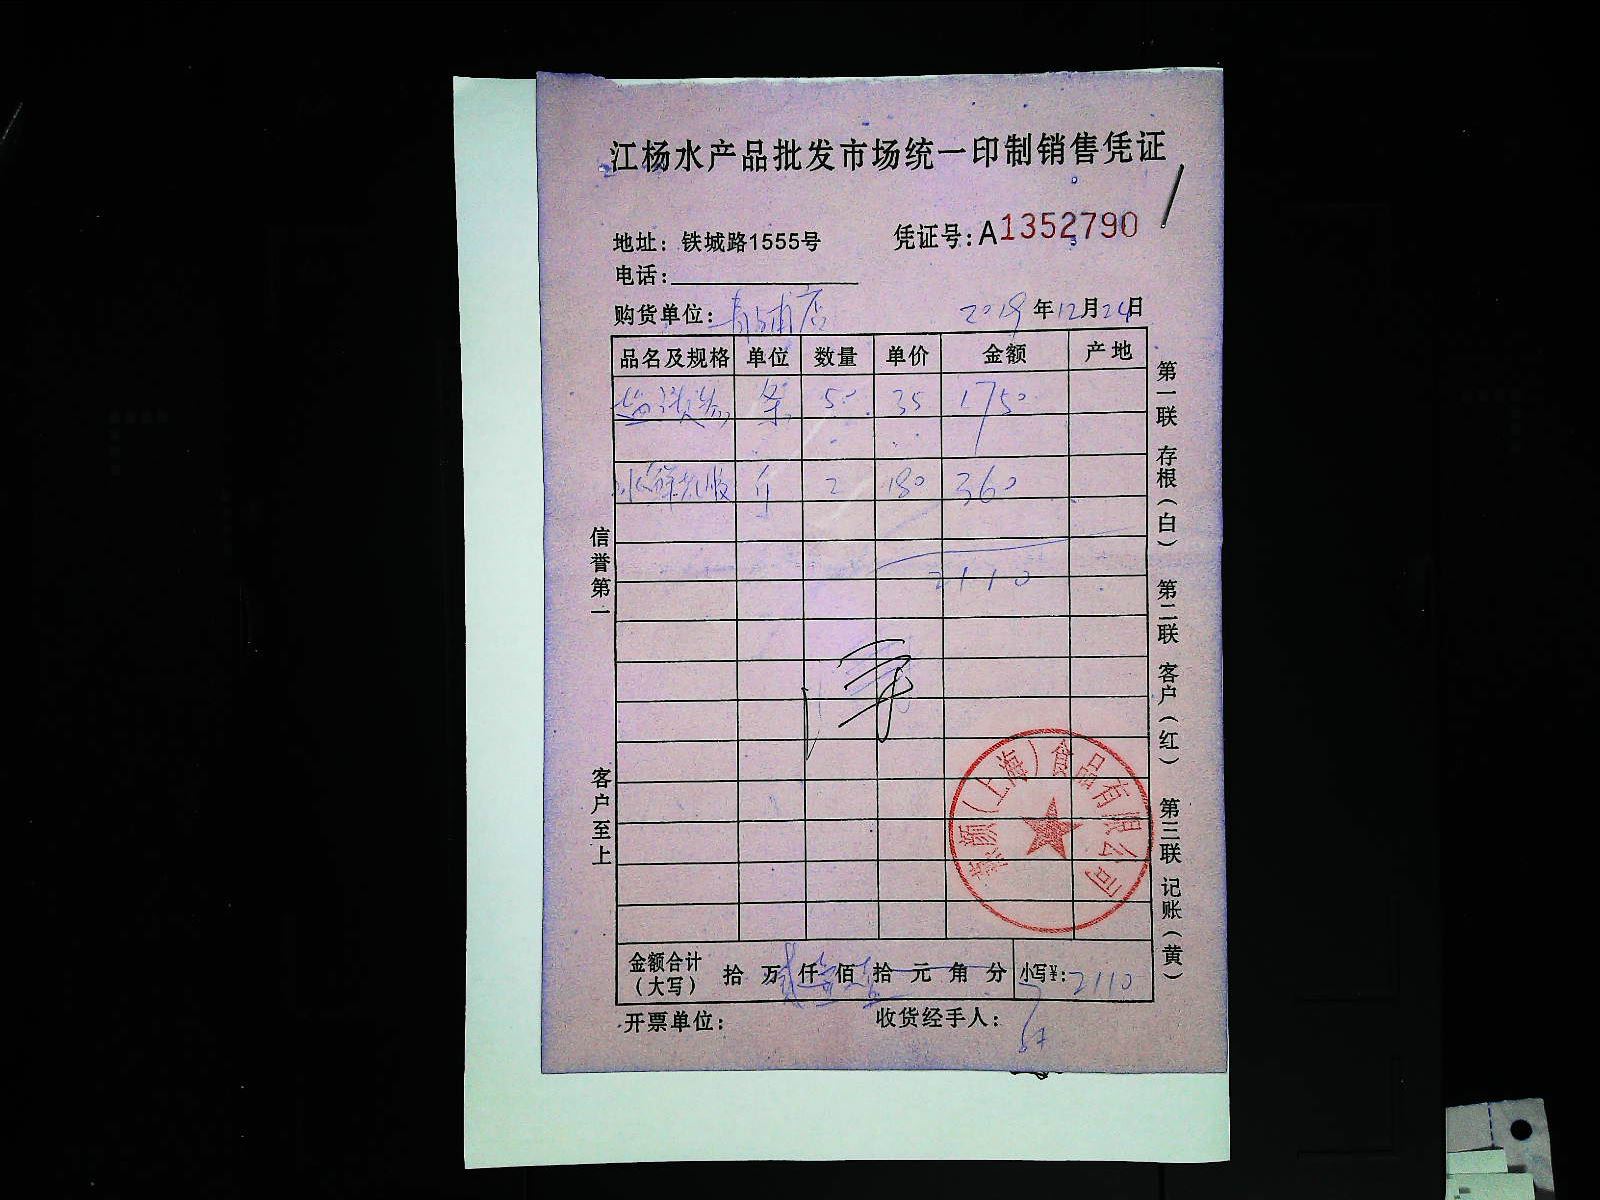 江杨水产品批发市场统一印制销售凭证
地址：铁城路1555号
凭证号：A1352790
电话：
购货单位：青浦店
2019年12月24日
品名及规格 单位 数量 单价 金额 产地
条 50 35 1750
斤 2 180 360
2110
信誉第一
客户至上
第一联 存根（白） 第二联 客户（红） 第三联 记账（黄）
颜（上海）食品有限公司
金额合计（大写） 拾 万 仟 佰 拾 元 角 分 小写¥：2110
开票单位：
收货经手人：